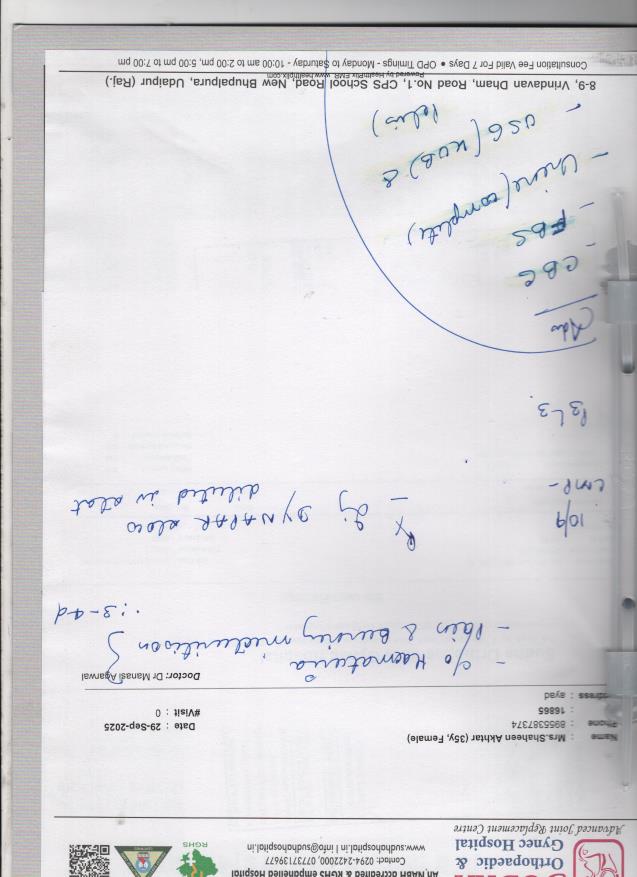 Orthopaedic &
Gynec Hospital
Advanced Joint Replacement Centre
An NABH accredited & RGHS empanelled Hospital
Contact: 0294-2422000, 07737139677
www.sudhahospital.in | info@sudhahospital.in
RGHS
Name : Mrs.Shaheen Akhtar (35y, Female)
Phone : 8955387374
: 16865
Address : ayad
Date : 29-Sep-2025
#Visit : 0
Doctor: Dr Manasi Agarwal
- c/o Haematuria
- Pain & Burning micturition } : 3-4d
10/9
LMP -
P3L3
Rx
- Inj DYNAPAR slow
diluted iv stat
Adv
- CBC
- FBS
- Urine (complete)
- USG (KUB) &
Pelvis)
8-9, Vrindavan Dham, Road No.1, CPS School Road, New Bhupalpura, Udaipur (Raj.)
Powered by HealthPlix EMR. www.healthplix.com
Consultation Fee Valid For 7 Days • OPD Timings - Monday to Saturday - 10:00 am to 2:00 pm, 5:00 pm to 7:00 pm